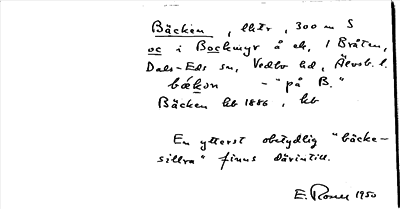 Bäcken, lhtr, 300 m S
oc i Bockmyr å ek, 1 Bråten,
Dals-Eds sn, Vedbo hd, Älvsb. l.
bækon - "på B."
Bäcken hb 1886, hb
En ytterst obetydlig "bäcke-
sillra" finns därintill.
E. Rosell 1950